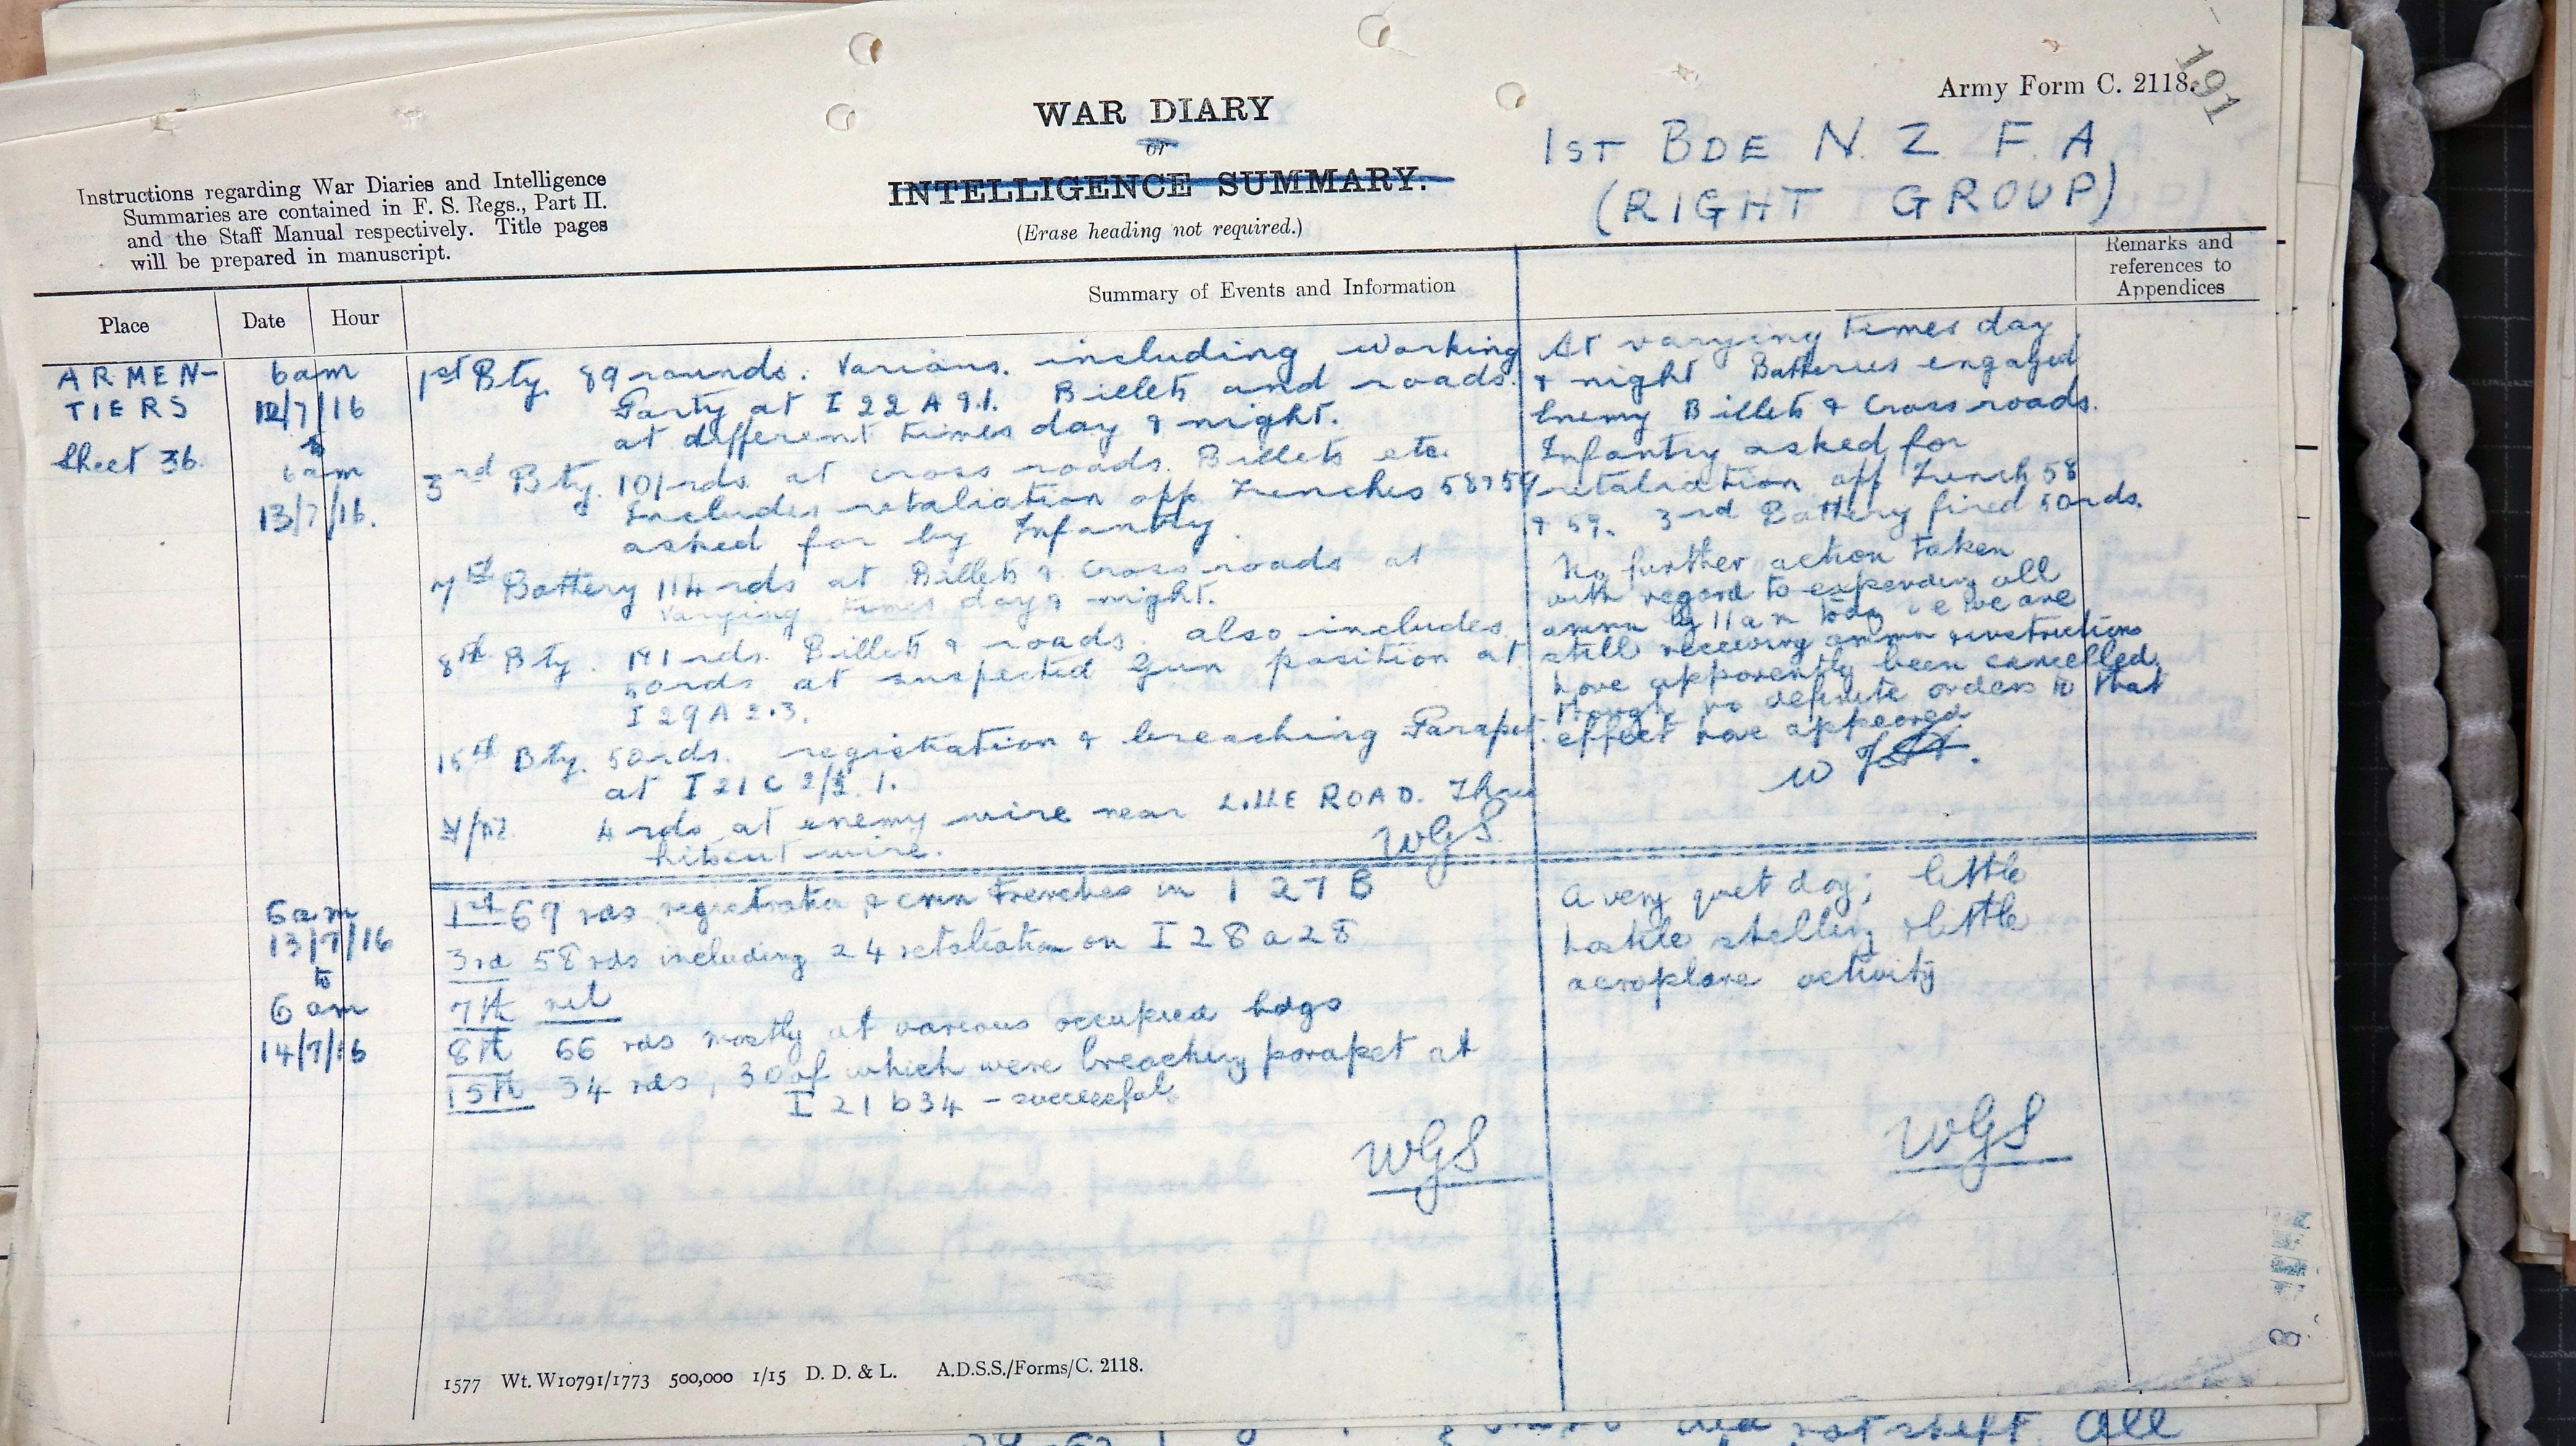 Army Form C. 2118.
191
WAR DIARY
or
INTELLIGENCE SUMMARY.
(Erase heading not required.)
1ST BDE N. Z F. A
(RIGHT GROUP)
Instructions regarding War Diaries and Intelligence
Summaries are contained in F. S. Regs., Part II.
and the Staff Manual respectively. Title pages
will be prepared in manuscript.
Place
Date
Hour
Summary of Events and Information
Remarks and
references to
Appendices
ARMEN-
TIERS
Sheet 36.
6am
12/7/16
to
6am
13/7/16.
1st Bty. 89 rounds. Various. including working
Party at I 22 A 9.1. Billets and roads.
at different times day & night.
3rd Bty. 101 rds at cross roads. Billets etc.
Includes retaliation opp Trenches 58 & 59
asked for by Infantry.
7th Battery 114 rds at Billets & Cross roads at
varying times day & night.
8th Bty. 191 rds. Billets & roads. also includes
50rds at suspected Gun position at
I 29 A 2.3.
15th Bty. 50rds. registration & breaching Parapet.
at I 21 C 2/ 1.
4 rds at enemy wire near LILLE ROAD. Three
hits cut wire.
WGS.
At varying times day
& night Batteries engaged
Enemy Billets & Cross roads.
Infantry asked for
retaliation opp Trench 58
& 59. 3rd Battery fired 50rds.
No further action taken
with regard to expending all
ammn by 11 am today i e we are
still receiving ammn & instructions
have apparently been cancelled
though no definite orders to that
effect have appeared
6am
13/7/16
to
6 am
14/7/16
1st 69 rds registration & cmn trenches in I 27 B
3rd 58 rds including 24 retaliation on I 28 a 28
7th nil
8th 66 rds mostly at various occupied bdgs
15th 34 rds, 30 of which were breaching parapet at
I 21 b 34 - successful
WGS
A very quiet day; little
hostile shelling & little
aeroplane activity
WGS
1577 Wt. W10791/1773 500,000 1/15 D. D. & L. A.D.S.S./Forms/C. 2118.
not shift. All